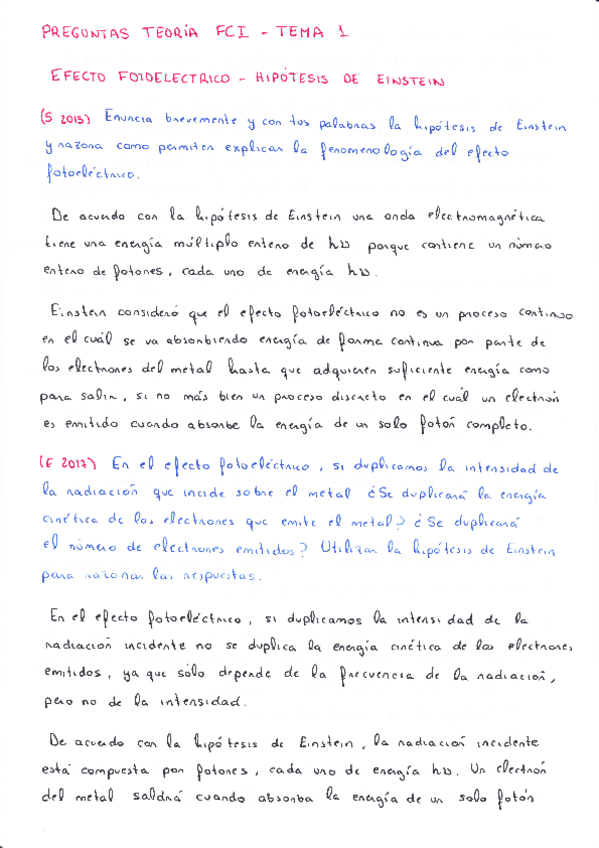 PREGUNTAS TEORÍA FCI - TEMA 1
EFECTO FOTOELECTRICO - HIPÓTESIS DE EINSTEIN
(S 2013) Enuncia brevemente y con tus palabras la hipótesis de Einstein
y razona como permiten explicar la fenomenología del efecto
fotoeléctrico.
De acuerdo con la hipótesis de Einstein una onda electromagnética
tiene una energía múltiplo entero de hν porque contiene un número
entero de fotones, cada uno de energía hν.
Einstein consideró que el efecto fotoeléctrico no es un proceso continuo
en el cuál se va absorbiendo energía de forma continua por parte de
los electrones del metal hasta que adquieren suficiente energía como
para salir, si no más bien un proceso discreto en el cuál un electrón
es emitido cuando absorbe la energía de un solo fotón completo.
(E 2017) En el efecto fotoeléctrico, si duplicamos la intensidad de
la radiación que incide sobre el metal ¿Se duplicará la energía
cinética de los electrones que emite el metal? ¿Se duplicará
el número de electrones emitidos? Utilizar la hipótesis de Einstein
para razonar las respuestas.
En el efecto fotoeléctrico, si duplicamos la intensidad de la
radiación incidente no se duplica la energía cinética de los electrones
emitidos, ya que sólo depende de la frecuencia de la radiación,
pero no de la intensidad.
De acuerdo con la hipótesis de Einstein, la radiación incidente
está compuesta por fotones, cada uno de energía hν. Un electrón
del metal saldrá cuando absorba la energía de un solo fotón